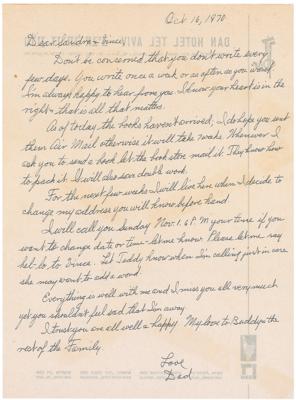 Oct 16, 1970
DAN HOTEL TEL AVIV
Dear Sandra + Vince,
Don't be concerned that you don't write every
few days. You write once a week or as often as you want.
I'm always happy to hear from you. I know your heart is in the
right - that is all that matters.
As of today, the books haven't arrived, I do hope you sent
them Air Mail otherwise it will take weeks. Whenever I
ask you to send a book let the book store mail it. They know how
to pack it. It will also save double work.
For the next few weeks I will live here when I decide to
change my address you will know before hand.
I will call you Sunday Nov. 1, 6 P.M your time if you
want to change date or time - let me know. Please let me say
hel-lo to Vince. Let Teddy know when I'm calling just in case
she may want to add a word.
Everything is well with me and I miss you all very much
yet you shouldn't feel sad that I'm away.
I trust you are all well & happy. My love to Buddy & the
rest of the Family.
Love
Dad